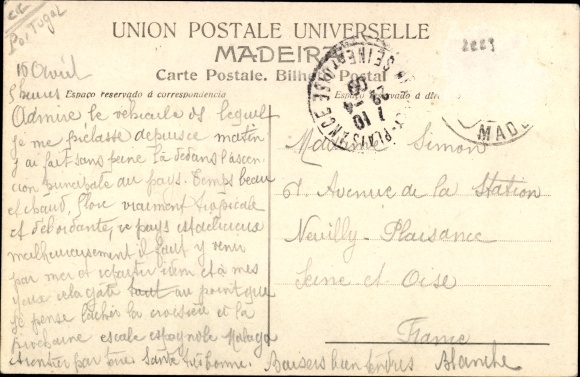 CC
Portugal
UNION POSTALE UNIVERSELLE
MADEIRA
Carte Postale. Bilhete Postal
Espaço reservado á correspondencia
Espaço reservado á
10 Avril
5 heures
Admire le vehicule ds lequel
je me prélasse depuis ce matin
j'ai fait sans peine là dedans l'ascen
cion principale du pays. Temps beau
et chaud, flore vraiment tropicale
et débordante, ce pays est delicieux
malheureusement il faut y venir
par mer et repartir idem et à mes
yeux cela gâte tout au point que
je pense lâcher la croisière à la
prochaine escale espagnole Malaga
et rentrer par terre Santé très bonne. Baisers bien tendres Blanche
Madame Simon
61. Avenue de la Station
Neuilly-Plaisance
Seine et Oise
France
PLAISANCE
SEINE ET OISE
MADE